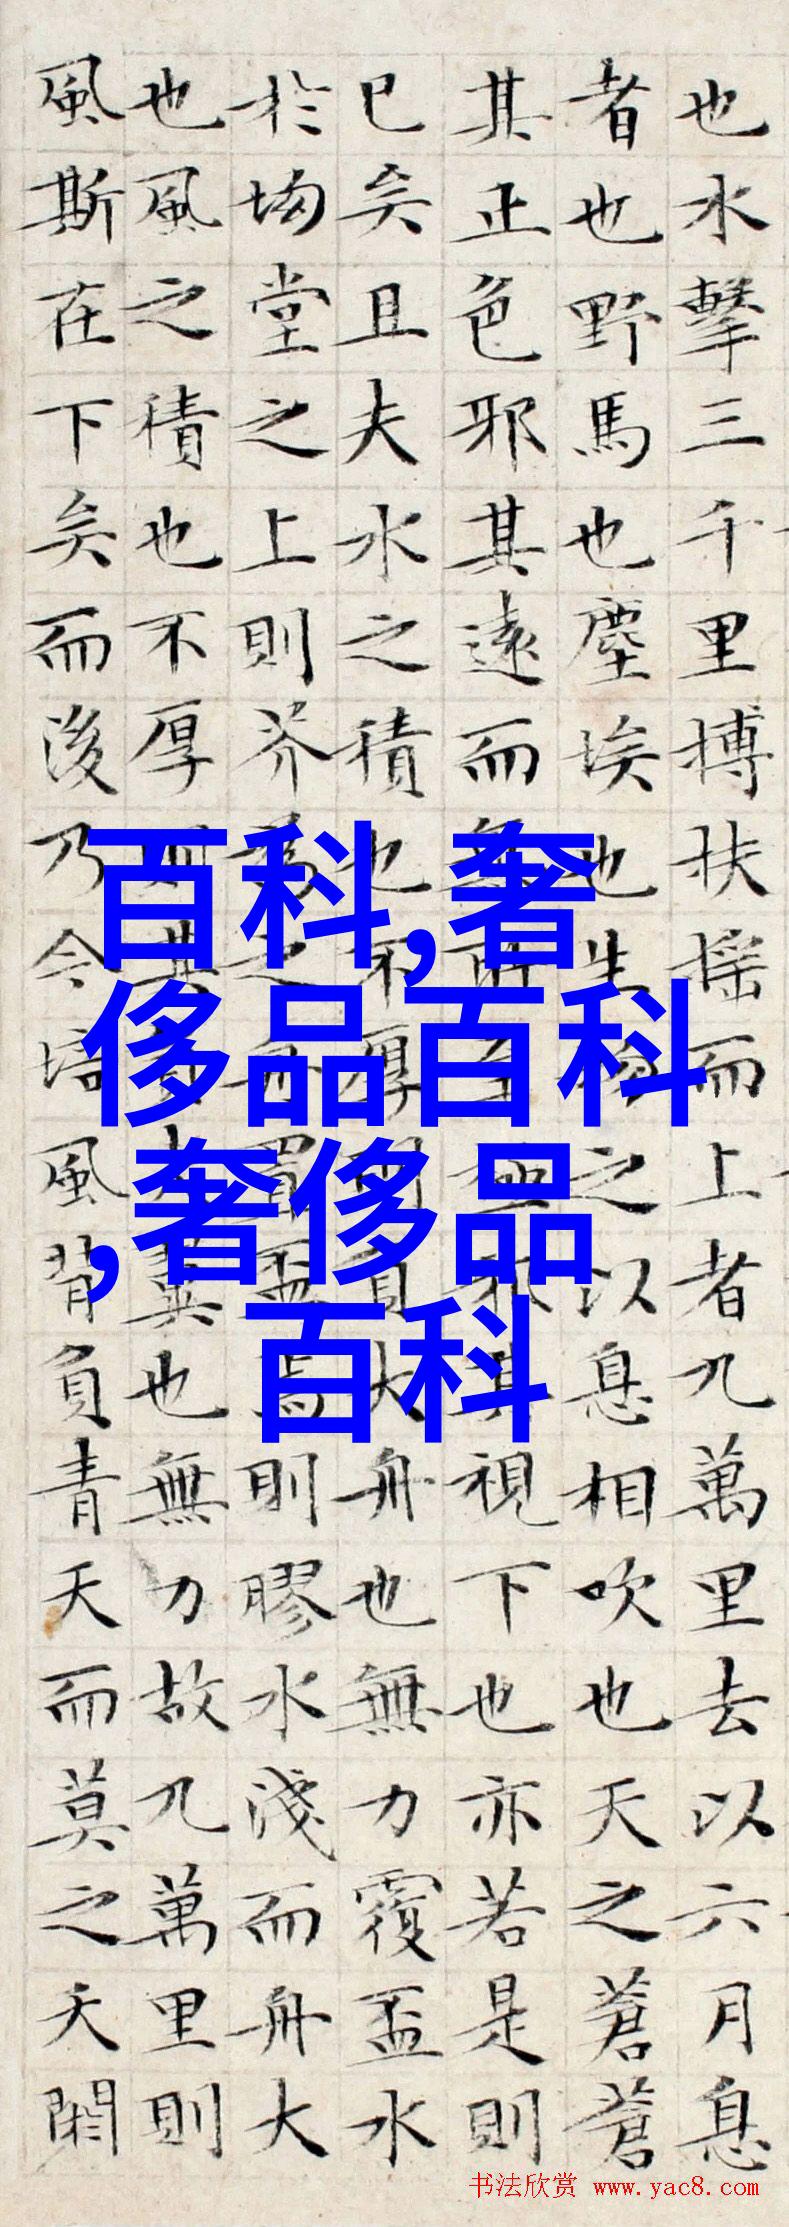 也水擊三千里搏扶搖而上者九萬里去以六月息
者也野馬也塵埃也生物之以息相吹也天之蒼蒼
其正色邪其遠而無所至極邪其視下也亦若是則
已矣且夫水之積也不厚則負大舟也無力覆盃水
於坳堂之上則芥為之舟置盃焉則膠水淺而舟大
也風之積也不厚則其負大翼也無力故九萬里則
風斯在下矣而後乃今培風背負青天而莫之夭閼
百科,奢
侈品百科
,奢侈品
百科
书法欣赏 www.yac8.com